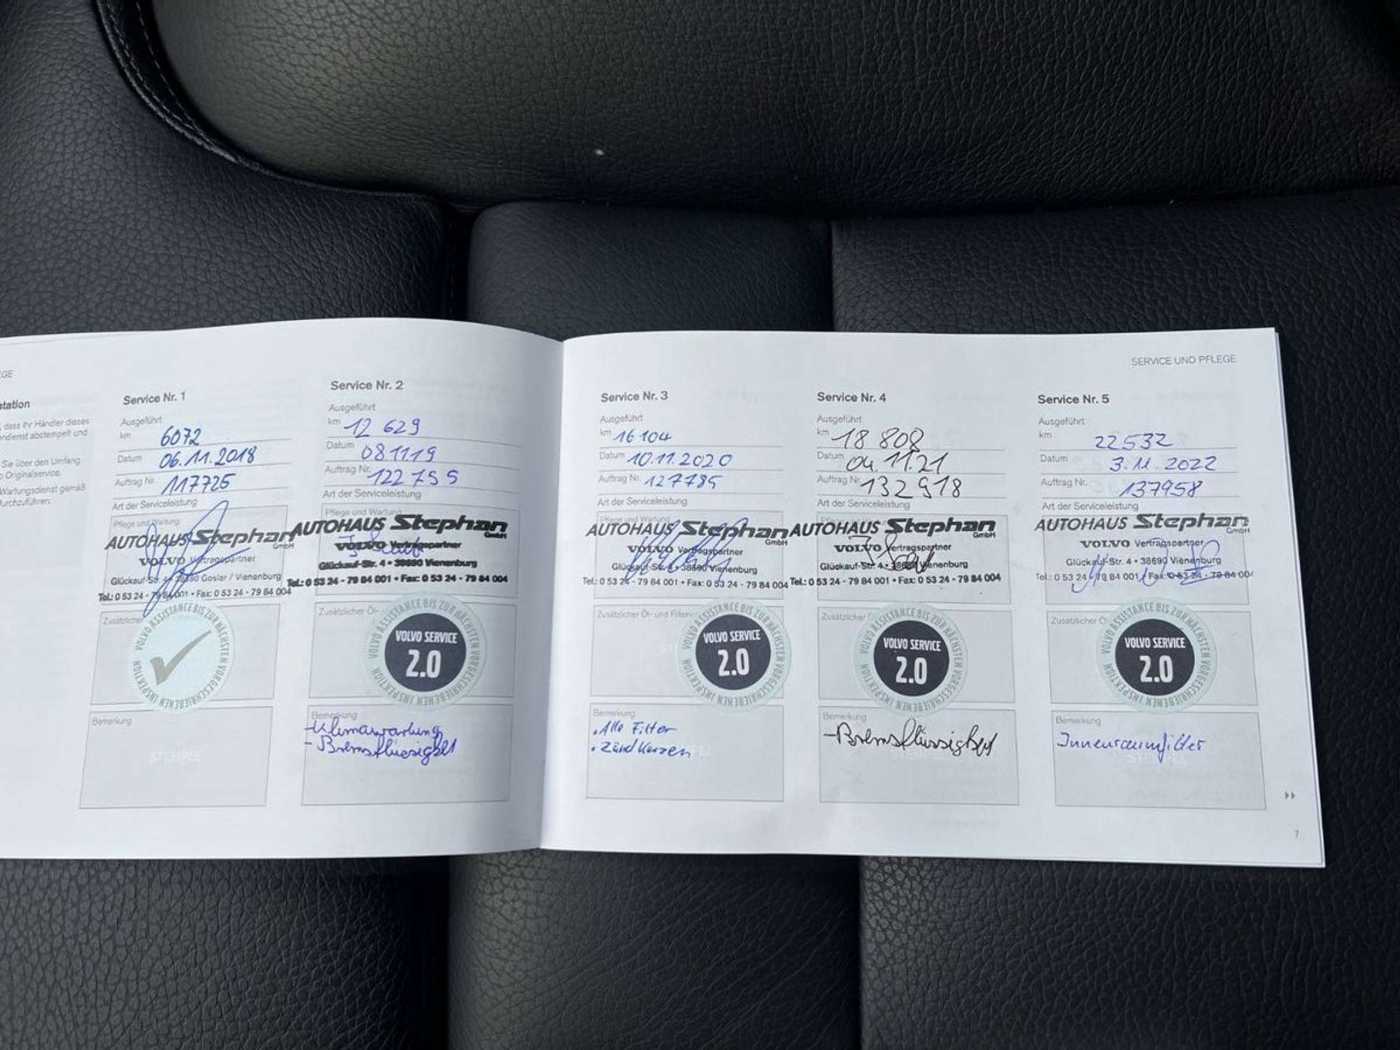 EGE
tation
, dass Ihr Händler dieses
endienst abstempelt und
Sie über den Umfang
Originalservice.
Wartungsdienst gemäß
durchzuführen.
Service Nr. 1
Ausgeführt
km 6072
Datum 06.11.2018
Auftrag Nr. 117725
Art der Serviceleistung
Pflege und Wartung
AUTOHAUS Stephan
GmbH
VOLVO Vertragspartner
Glückauf-Str. 4 • 38690 Goslar / Vienenburg
Tel.: 0 53 24 - 79 84 001 • Fax: 0 53 24 - 79 84 004
Zusätzlicher
VOLVO ASSISTANCE BIS ZUR NÄCHSTEN VORGESCHRIEBENEN INSPEKTION
Bemerkung
Service Nr. 2
Ausgeführt
km 12 629
Datum 081119
Auftrag Nr. 122 755
Art der Serviceleistung
Pflege und Wartung
AUTOHAUS Stephan
GmbH
VOLVO Vertragspartner
Glückauf-Str. 4 • 38690 Vienenburg
Tel.: 0 53 24 - 79 84 001 • Fax: 0 53 24 - 79 84 004
Zusätzlicher Öl-
VOLVO ASSISTANCE BIS ZUR NÄCHSTEN VORGESCHRIEBENEN INSPEKTION
VOLVO SERVICE
2.0
Bemerkung
- Klimawartung
- Bremsflüssigkeit
SERVICE UND PFLEGE
Service Nr. 3
Ausgeführt
km 16 104
Datum 10.11.2020
Auftrag Nr. 127785
Art der Serviceleistung
Pflege und Wartung
AUTOHAUS Stephan
GmbH
VOLVO Vertragspartner
Glückauf-Str. 4 • 38690 Vienenburg
Tel.: 0 53 24 - 79 84 001 • Fax: 0 53 24 - 79 84 004
Zusätzlicher Öl- und Filter
VOLVO ASSISTANCE BIS ZUR NÄCHSTEN VORGESCHRIEBENEN INSPEKTION
VOLVO SERVICE
2.0
Bemerkung
• Alle Filter
• Zündkerzen
Service Nr. 4
Ausgeführt
km 18 808
Datum 04.11.21
Auftrag Nr. 132 918
Art der Serviceleistung
AUTOHAUS Stephan
GmbH
VOLVO Vertragspartner
Glückauf-Str. 4 • 38690 Vienenburg
Tel.: 0 53 24 - 79 84 001 • Fax: 0 53 24 - 79 84 004
VOLVO ASSISTANCE BIS ZUR NÄCHSTEN VORGESCHRIEBENEN INSPEKTION
VOLVO SERVICE
2.0
Bemerkung
- Bremsflüssigkeit
Service Nr. 5
Ausgeführt
km 22532
Datum 3.11.2022
Auftrag Nr. 137958
Art der Serviceleistung
AUTOHAUS Stephan
GmbH
VOLVO Vertragspartner
Glückauf-Str. 4 • 38690 Vienenburg
Tel.: 0 53 24 - 79 84 001 • Fax: 0 53 24 - 79 84 004
Zusätzlicher Ö
VOLVO ASSISTANCE BIS ZUR NÄCHSTEN VORGESCHRIEBENEN INSPEKTION
VOLVO SERVICE
2.0
Bemerkung
Innenraumfilter
7